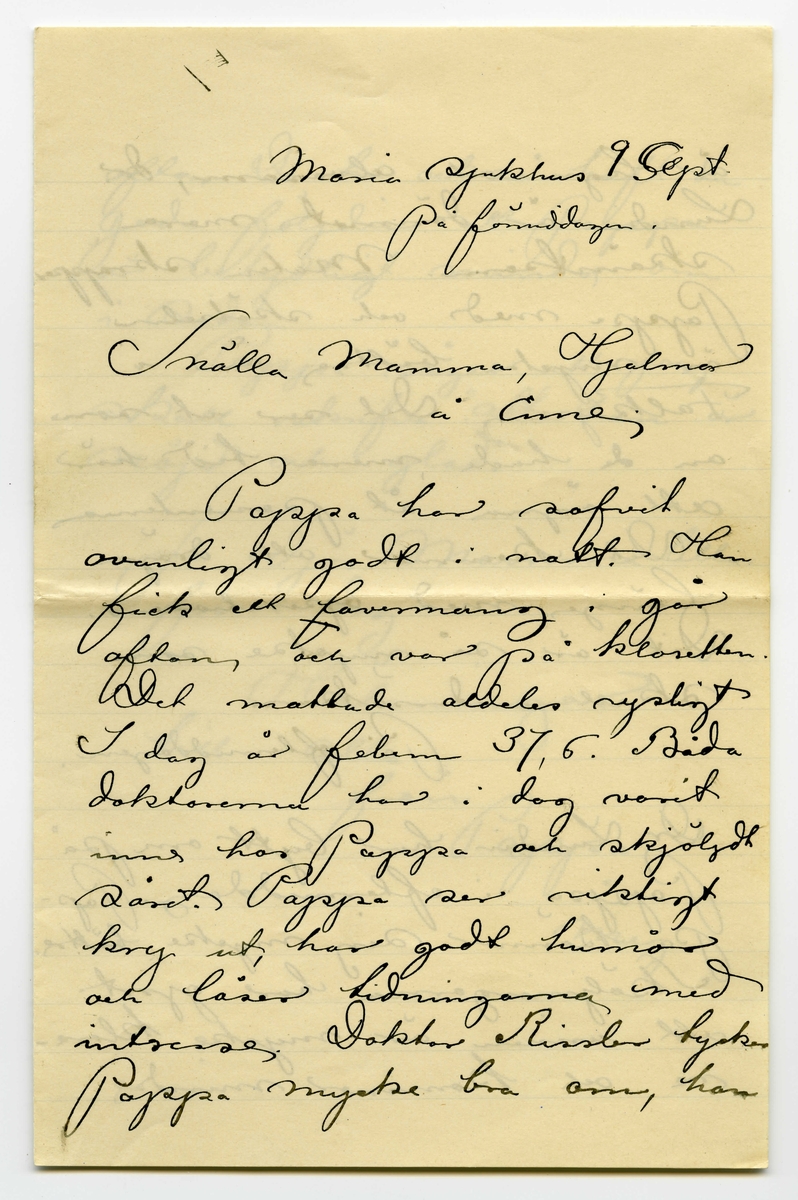 Maria sjukhus 9 Sept.
på förmiddagen.
Snälla Mamma, Hjalmar
å Enne,
Pappa har sofvit
ovanligt godt i natt. Han
fick ett favermang i går
afton, och var på klosetten.
Det mattade aldeles rysligt
I dag är febern 37,6. Båda
doktorerna har i dag varit
inne hos Pappa och skjöljdt
såret. Pappa ser riktigt
kry ut, har godt humör
och läser tidningarna med
intresse. Doktor Rissler tycker
Pappa mycke bra om, han